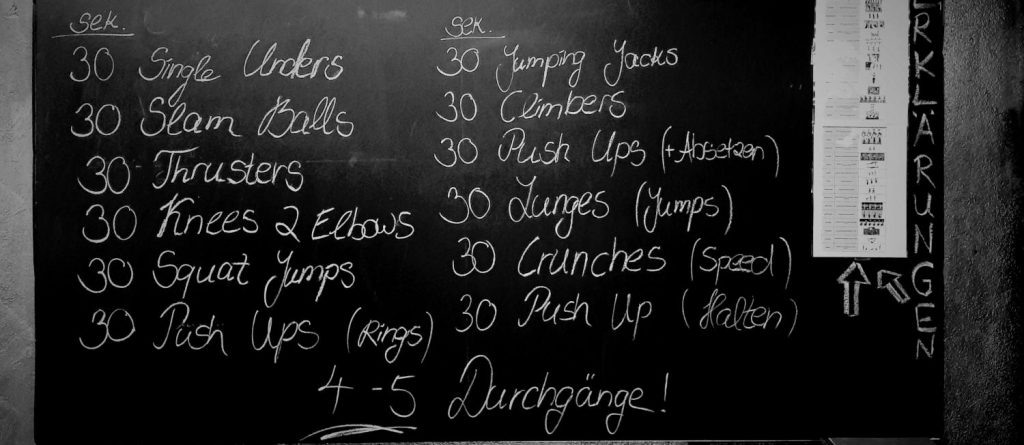 sek.
30 Single Unders
30 Slam Balls
30 Thrusters
30 Knees 2 Elbows
30 Squat Jumps
30 Push Ups (Rings)
sek.
30 Jumping Jacks
30 Climbers
30 Push Ups (+Absetzen)
30 Lunges (Jumps)
30 Crunches (Speed)
30 Push Up (Halten)
4-5 Durchgänge!
ERKLÄRUNGEN